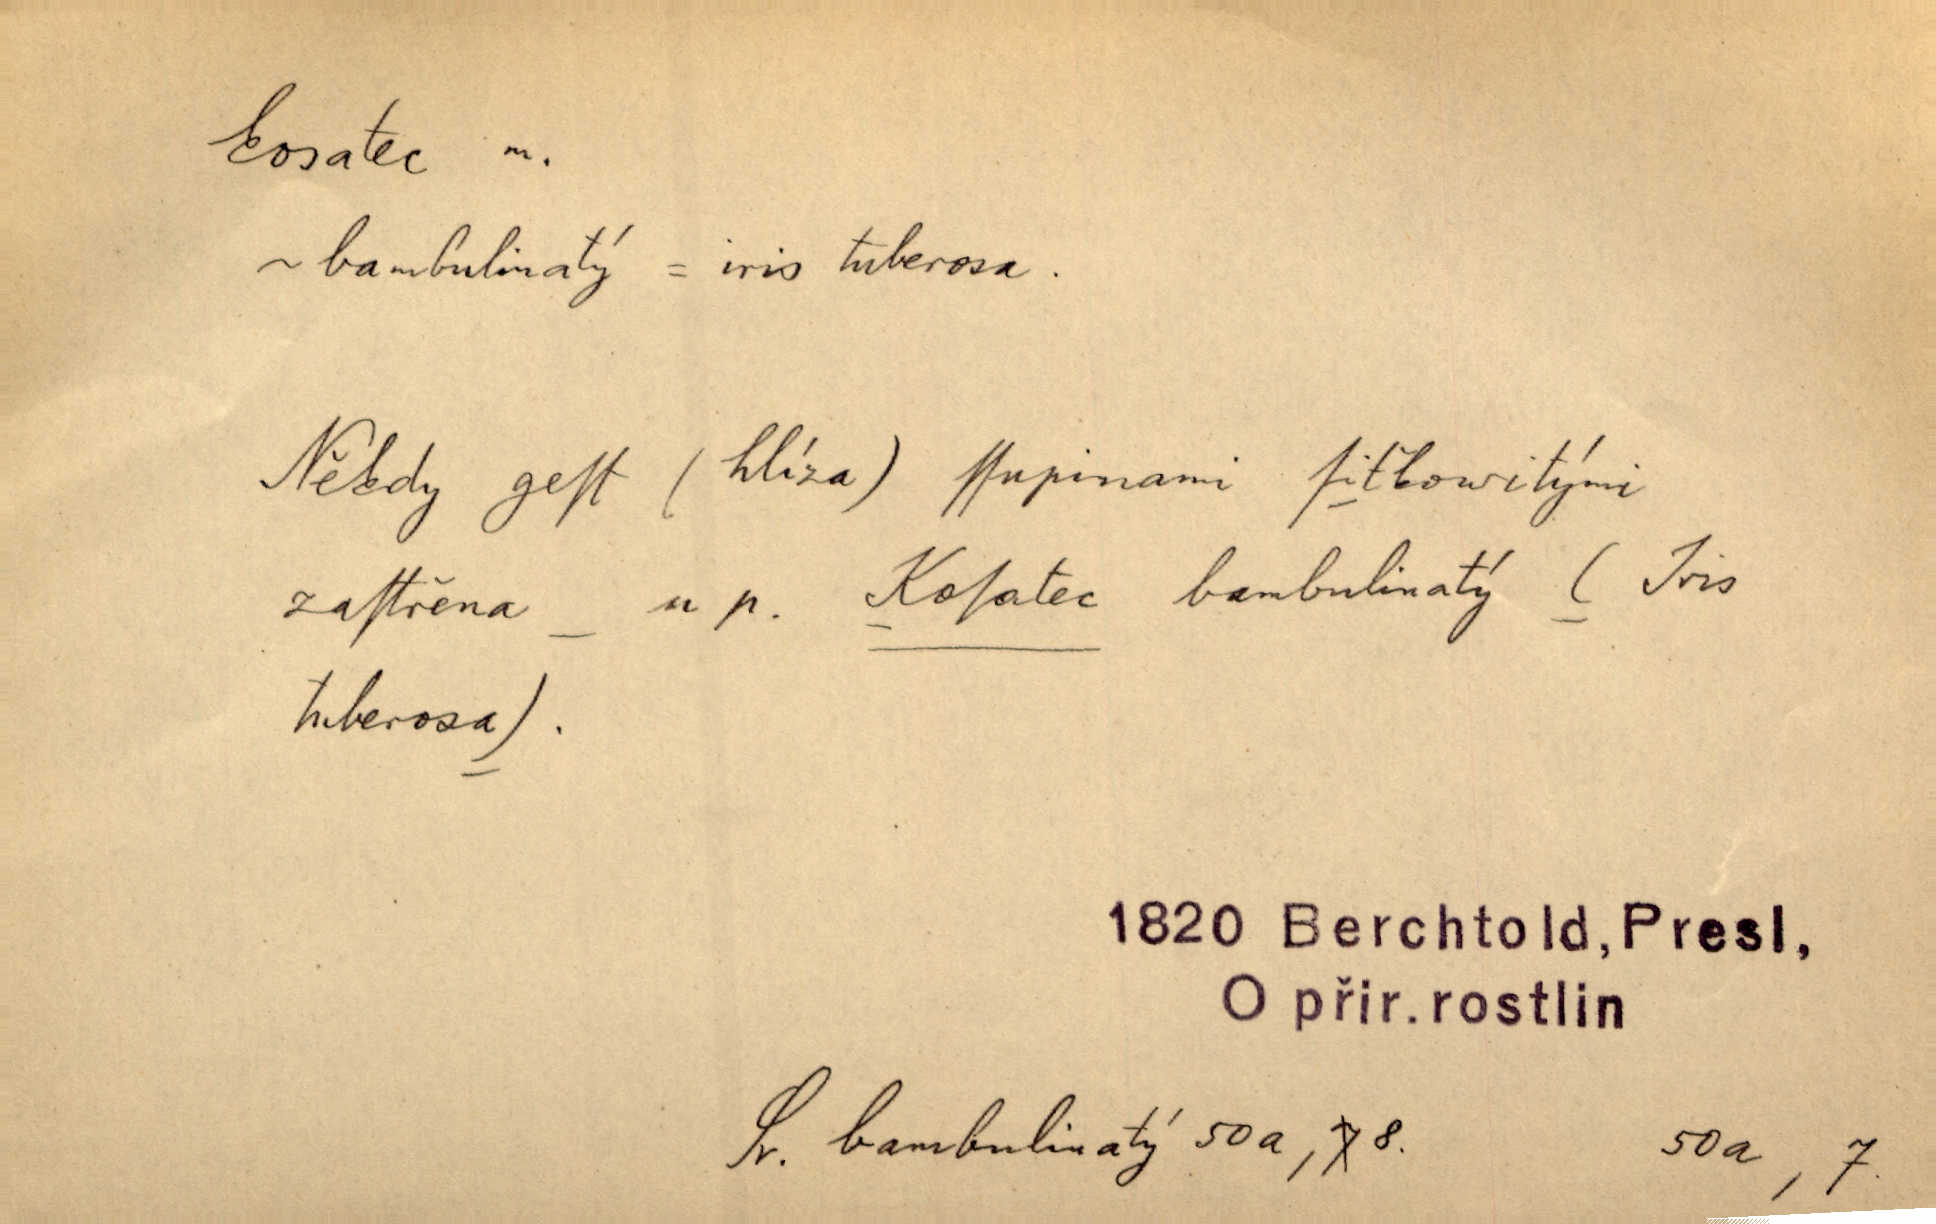 kosatec m.
~ bambulinatý = iris tuberosa.
Někdy geſt (hlíza) ſſupinami ſiťkowitými
zaſtřena _ n p. Koſatec bambulinatý (Iris
tuberosa).
1820 Berchtold, Presl,
O přir. rostlin
Sr. bambulinatý 50a, 7 8. 50a, 7.